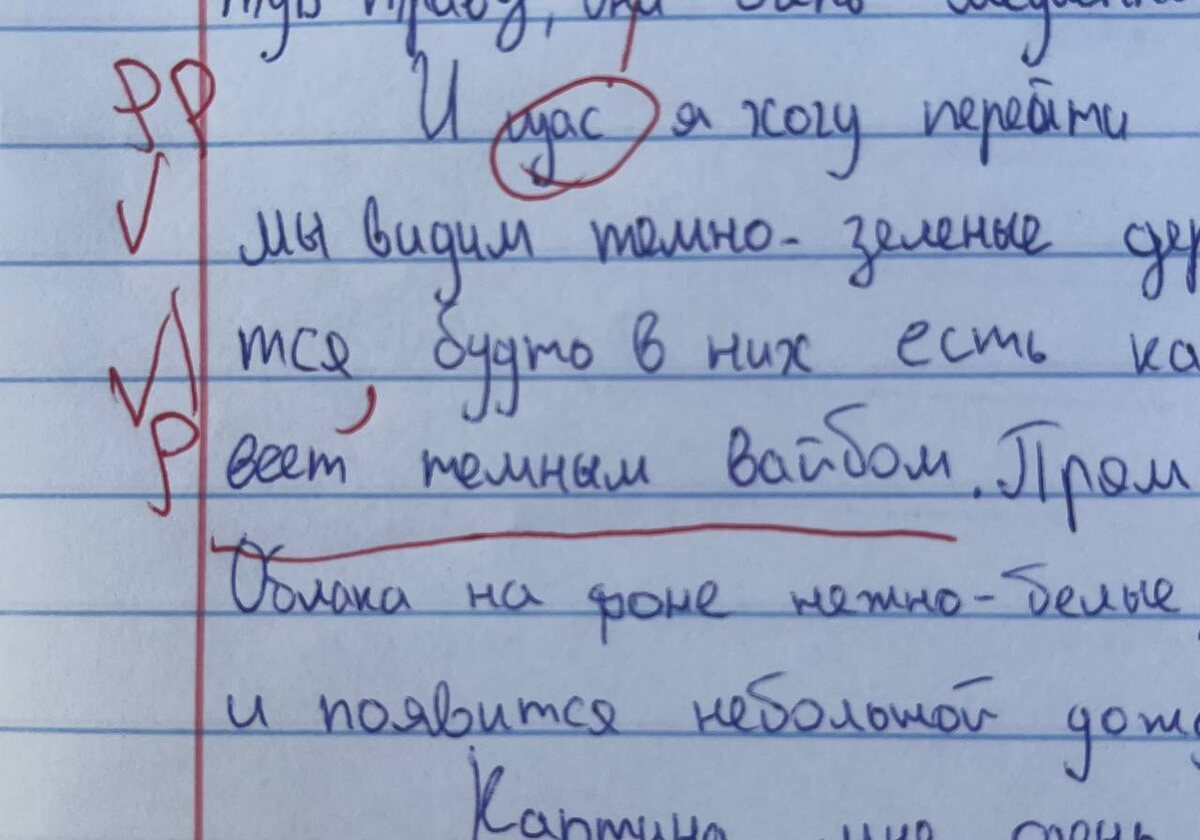 траву, они
Р Р И щас я хочу перейти
√ мы видим темно-зеленые дер
√ тся, будто в них есть ка
Р веет темным вайбом.
Облака на фоне нежно-белые
и появится небольшой дож
Картина мне очень